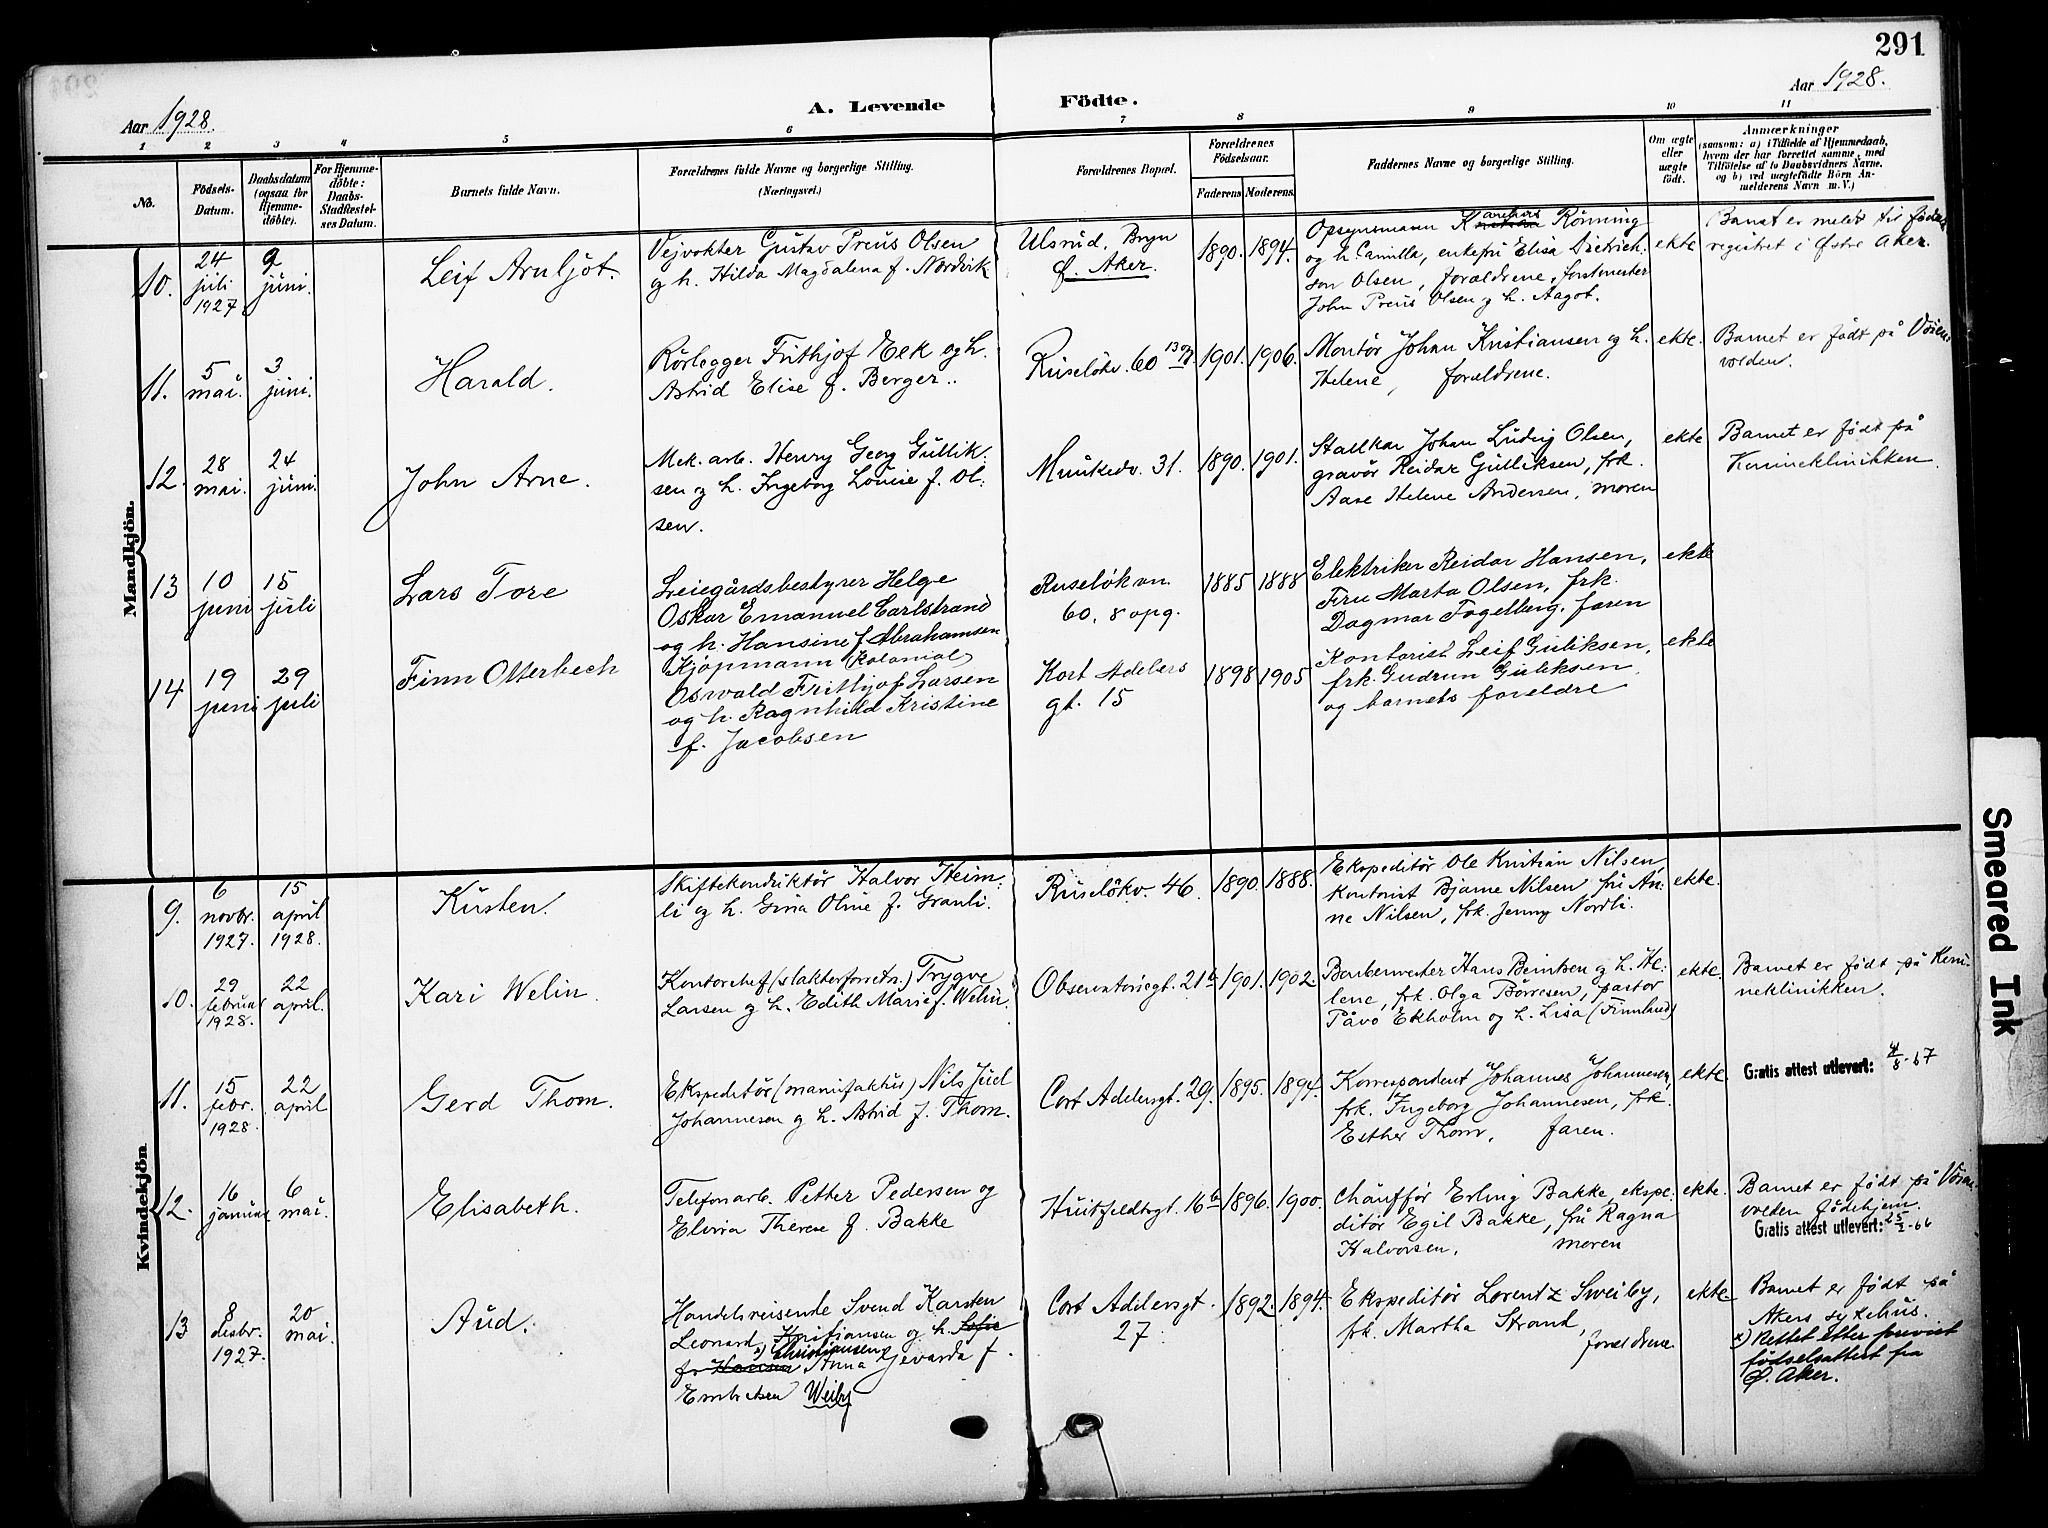 291
Aar 1928.
A. Levende Födte.
Aar 1928.
1 2 3 4 5 6 7 8 9 10 11
No.
Födsels-Datum.
Daabsdatum (ogsaa for Hjemmedöbte).
For Hjemmedöbte: Daabs-Stadfæstelses Datum.
Barnets fulde Navn.
Forældrenes fulde Navne og borgerlige Stilling.
(Næringsvei.)
Forældrenes Bopæl.
Forældrenes Födselsaar.
Faderens. Moderens.
Faddernes Navne og borgerlige Stilling.
Om ægte eller uægte födt.
Anmærkninger
(saasom: a) i Tilfælde af Hjemmedaab, hvem der har forrettet samme, med Tilföielse af to Daabsvidners Navne. og b) ved uægtefödte Börn Anmelderens Navn m. V.)
Mandkjön.
10.
24 juli 1927
9 juni.
Leif Arnljot.
Veivokter Gustav Preus Olsen
og h. Hilda Magdalena f. Nordvik
Ulsrud, Bryn
Ø. Aker.
1890. 1894.
Opsynsmann K Rönning
og h. Camilla, enkefru Elisa Dietrich-
son Olsen, foreldrene, forstmester
John Preus Olsen og h. Aagot.
ekte
Barnet er meldt til födsels
registret i Østre Aker.
11.
5 mai.
3 juni.
Harald.
Rörlegger Frithjof Eek og h.
Astrid Elise f. Berger..
Ruselökv. 60 13 opg.
1901. 1906.
Montör Johan Kristiansen og h.
Helene, foreldrene.
ekte.
Barnet er född på Voien-
volden.
12.
28 mai.
24 juni.
John Arne.
Mek. arb. Henry Georg Gullik-
sen og h. Ingeborg Louise f. Ol-
sen.
Munkedv. 31.
1890. 1901.
Stallkar Johan Ludvig Olsen,
gravör Reidar Gulliksen, frk.
Aase Helene Andersen, moren
ekte
Barnet er född på
Kvinneklinikken.
13
10 juni
15 juli
Lars Tore
Leiegårdsbestyrer Helge
Oskar Emanuel Carlstrand
og h. Hansine f. Abrahamsen
Ruselökvn.
60, 8 opg.
1885 1888
Elektriker Reidar Hansen,
Fru Marta Olsen, frk.
Dagmar Fagelberg, faren
ekte
14
19 juni
29 juli
Finn Otterbech
Kjöpmann (Kolonial)
Oswald Frithjof Larsen
og h. Ragnhild Kristine
f. Jacobsen
Kort Adelers
gt. 15
1898 1905
Kontorist Leif Guliksen,
frk. Gudrun Guliksen
og barnets foreldre
ekte
Kvindekjön
9.
6 novbr. 1927.
15 april 1928.
Kirsten.
Skiftekonduktör Halvor Heim-
li og h. Gina Oline f. Granli.
Ruselökv. 46.
1890. 1888.
Ekspeditör Ole Kristian Nilsen,
kontorist Bjarne Nilsen fru An-
ne Nilsen, frk. Jenny Nordli.
ekte.
10.
29 februar 1928.
22 april.
Kari Welin.
Kontorchef (slakterforretn.) Trygve
Larsen og h. Edith Marie f. Welin.
Observatoriegt. 21 b
1901. 1902.
Barbermester Hans Berntsen og h. He-
lene, frk. Olga Börresen, pastor
Påvo Ekholm og h. Lisa (Finnland)
ekte.
Barnet er född på Kvin-
neklinikken.
11.
15 febr. 1928.
22 april
Gerd Thom.
Ekspeditör (manufaktur) Nils Juel
Johannesen og h. Astrid f. Thom.
Cort Adelersgt. 29.
1895. 1894.
Korrespondent Johannes Johannesen,
frk. Ingeborg Johannesen, frk.
Esther Thom, faren.
ekte.
Gratis attest utlevert: 4/8-67
12.
16 januar
6 mai.
Elisabeth.
Telefonarb. Petter Pedersen og
Elvira Therese f. Bakke
Huitfeldtsgt. 16 b
1896. 1900.
Chaufför Erling Bakke, ekspe-
ditör Egil Bakke, fru Ragna
Halvorsen, moren
ekte.
Barnet er född på Voien-
volden födehjem.
Gratis attest utlevert: 25/2-66
13
8 desbr. 1927.
20 mai.
Aud.
Handelsreisende Svend Karsten
Leonard Kristiansen og h. Sofie
x) Christiansen
f. Hansen Anna Gjevarda f.
Embretsen Weiby
Cort Adelersgt.
27.
1892. 1894.
Ekspeditör Lorentz Sweiby,
frk. Martha Strand,
foreldrene.
ekte.
Barnet er född på
Akers sykehus.
x) Rettet etter previst
födselsattest fra
Ø. Aker.
Smeared Ink